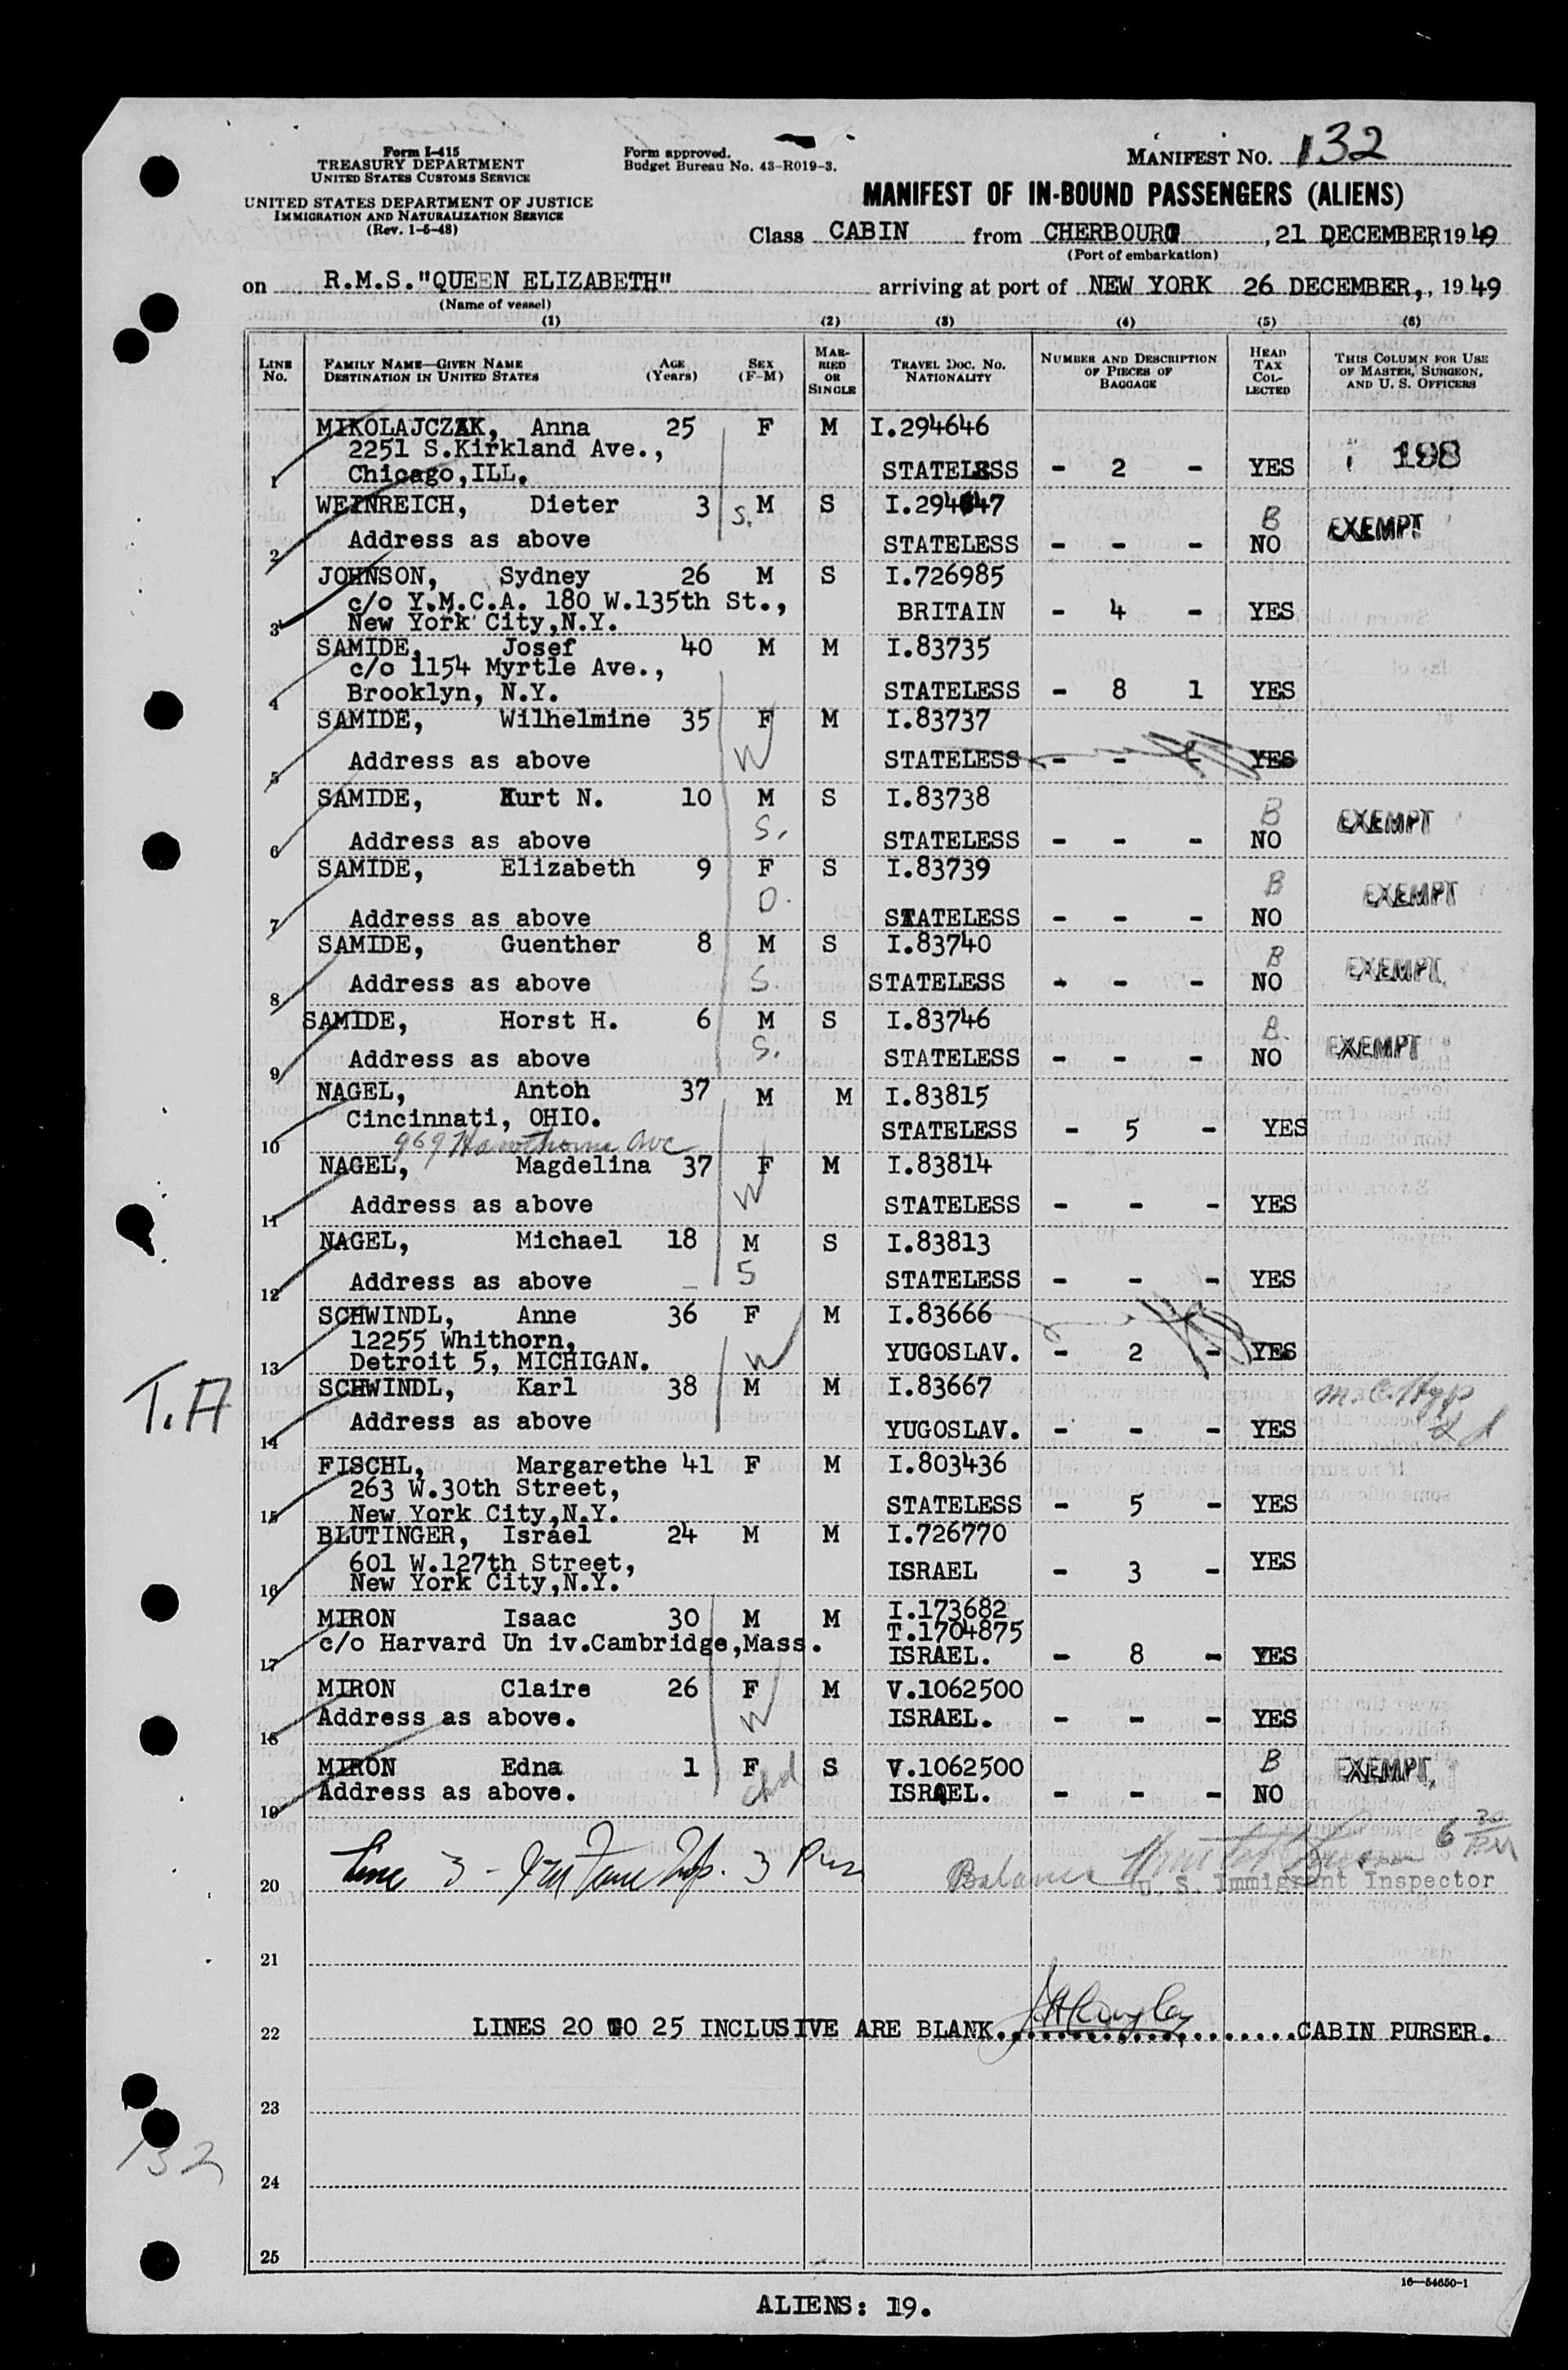 Form I-415
TREASURY DEPARTMENT
UNITED STATES CUSTOMS SERVICE
UNITED STATES DEPARTMENT OF JUSTICE
IMMIGRATION AND NATURALIZATION SERVICE
(Rev. 1-5-48)
Form approved.
Budget Bureau No. 43-R019-3.
MANIFEST NO. 132
MANIFEST OF IN-BOUND PASSENGERS (ALIENS)
Class CABIN from CHERBOURG, 21 DECEMBER 1949
(Port of embarkation)
on R.M.S. "QUEEN ELIZABETH" arriving at port of NEW YORK 26 DECEMBER, , 1949
(Name of vessel)
(1) (2) (3) (4) (5) (6)
LINE No. FAMILY NAME—GIVEN NAME DESTINATION IN UNITED STATES AGE (Years) SEX (F-M) MARRIED OR SINGLE TRAVEL DOC. NO. NATIONALITY NUMBER AND DESCRIPTION OF PIECES OF BAGGAGE HEAD TAX COLLECTED THIS COLUMN FOR USE OF MASTER, SURGEON, AND U. S. OFFICERS
MIKOLAJCZAK, Anna 25 F M I.294646
2251 S.Kirkland Ave.,
1 Chicago,ILL. STATELESS - 2 - YES 198
WEINREICH, Dieter 3 S. M S I.294647 B EXEMPT
2 Address as above STATELESS - - - NO
JOHNSON, Sydney 26 M S I.726985
c/o Y.M.C.A. 180 W.135th St., BRITAIN - 4 - YES
3 New York City,N.Y.
SAMIDE, Josef 40 M M I.83735
c/o 1154 Myrtle Ave.,
4 Brooklyn, N.Y. STATELESS - 8 1 YES
SAMIDE, Wilhelmine 35 F M I.83737
5 Address as above W STATELESS - - - YES
SAMIDE, Kurt N. 10 M S I.83738 B EXEMPT
6 Address as above S. STATELESS - - - NO
SAMIDE, Elizabeth 9 F S I.83739 B EXEMPT
7 Address as above D. STATELESS - - - NO
SAMIDE, Guenther 8 M S I.83740 B EXEMPT
8 Address as above S. STATELESS - - - NO
SAMIDE, Horst H. 6 M S I.83746 B EXEMPT
9 Address as above S. STATELESS - - - NO
NAGEL, Anton 37 M M I.83815
Cincinnati, OHIO. STATELESS - 5 - YES
10 969 Hawthorne Ave
NAGEL, Magdelina 37 F M I.83814
11 Address as above W STATELESS - - - YES
NAGEL, Michael 18 M S I.83813
12 Address as above S STATELESS - - - YES
SCHWINDL, Anne 36 F M I.83666
12255 Whithorn,
13 Detroit 5, MICHIGAN. W YUGOSLAV. - 2 - YES
T.A SCHWINDL, Karl 38 M M I.83667
14 Address as above YUGOSLAV. - - - YES
FISCHL, Margarethe 41 F M I.803436
263 W.30th Street,
15 New York City,N.Y. STATELESS - 5 - YES
BLUTINGER, Israel 24 M M I.726770
601 W.127th Street, ISRAEL - 3 - YES
16 New York City,N.Y.
MIRON Isaac 30 M M I.173682
T.1704875
17 c/o Harvard Un iv.Cambridge,Mass. ISRAEL. - 8 - YES
MIRON Claire 26 F M V.1062500
18 Address as above. W ISRAEL. - - - YES
MIRON Edna 1 F S V.1062500 B EXEMPT
19 Address as above. chd ISRAEL. - - - NO
6 30 PM
20 Line 3 - Balance U. S. Immigrant Inspector
21
22 LINES 20 TO 25 INCLUSIVE ARE BLANK......................CABIN PURSER.
23
132
24
25
16—54650-1
ALIENS: 19.